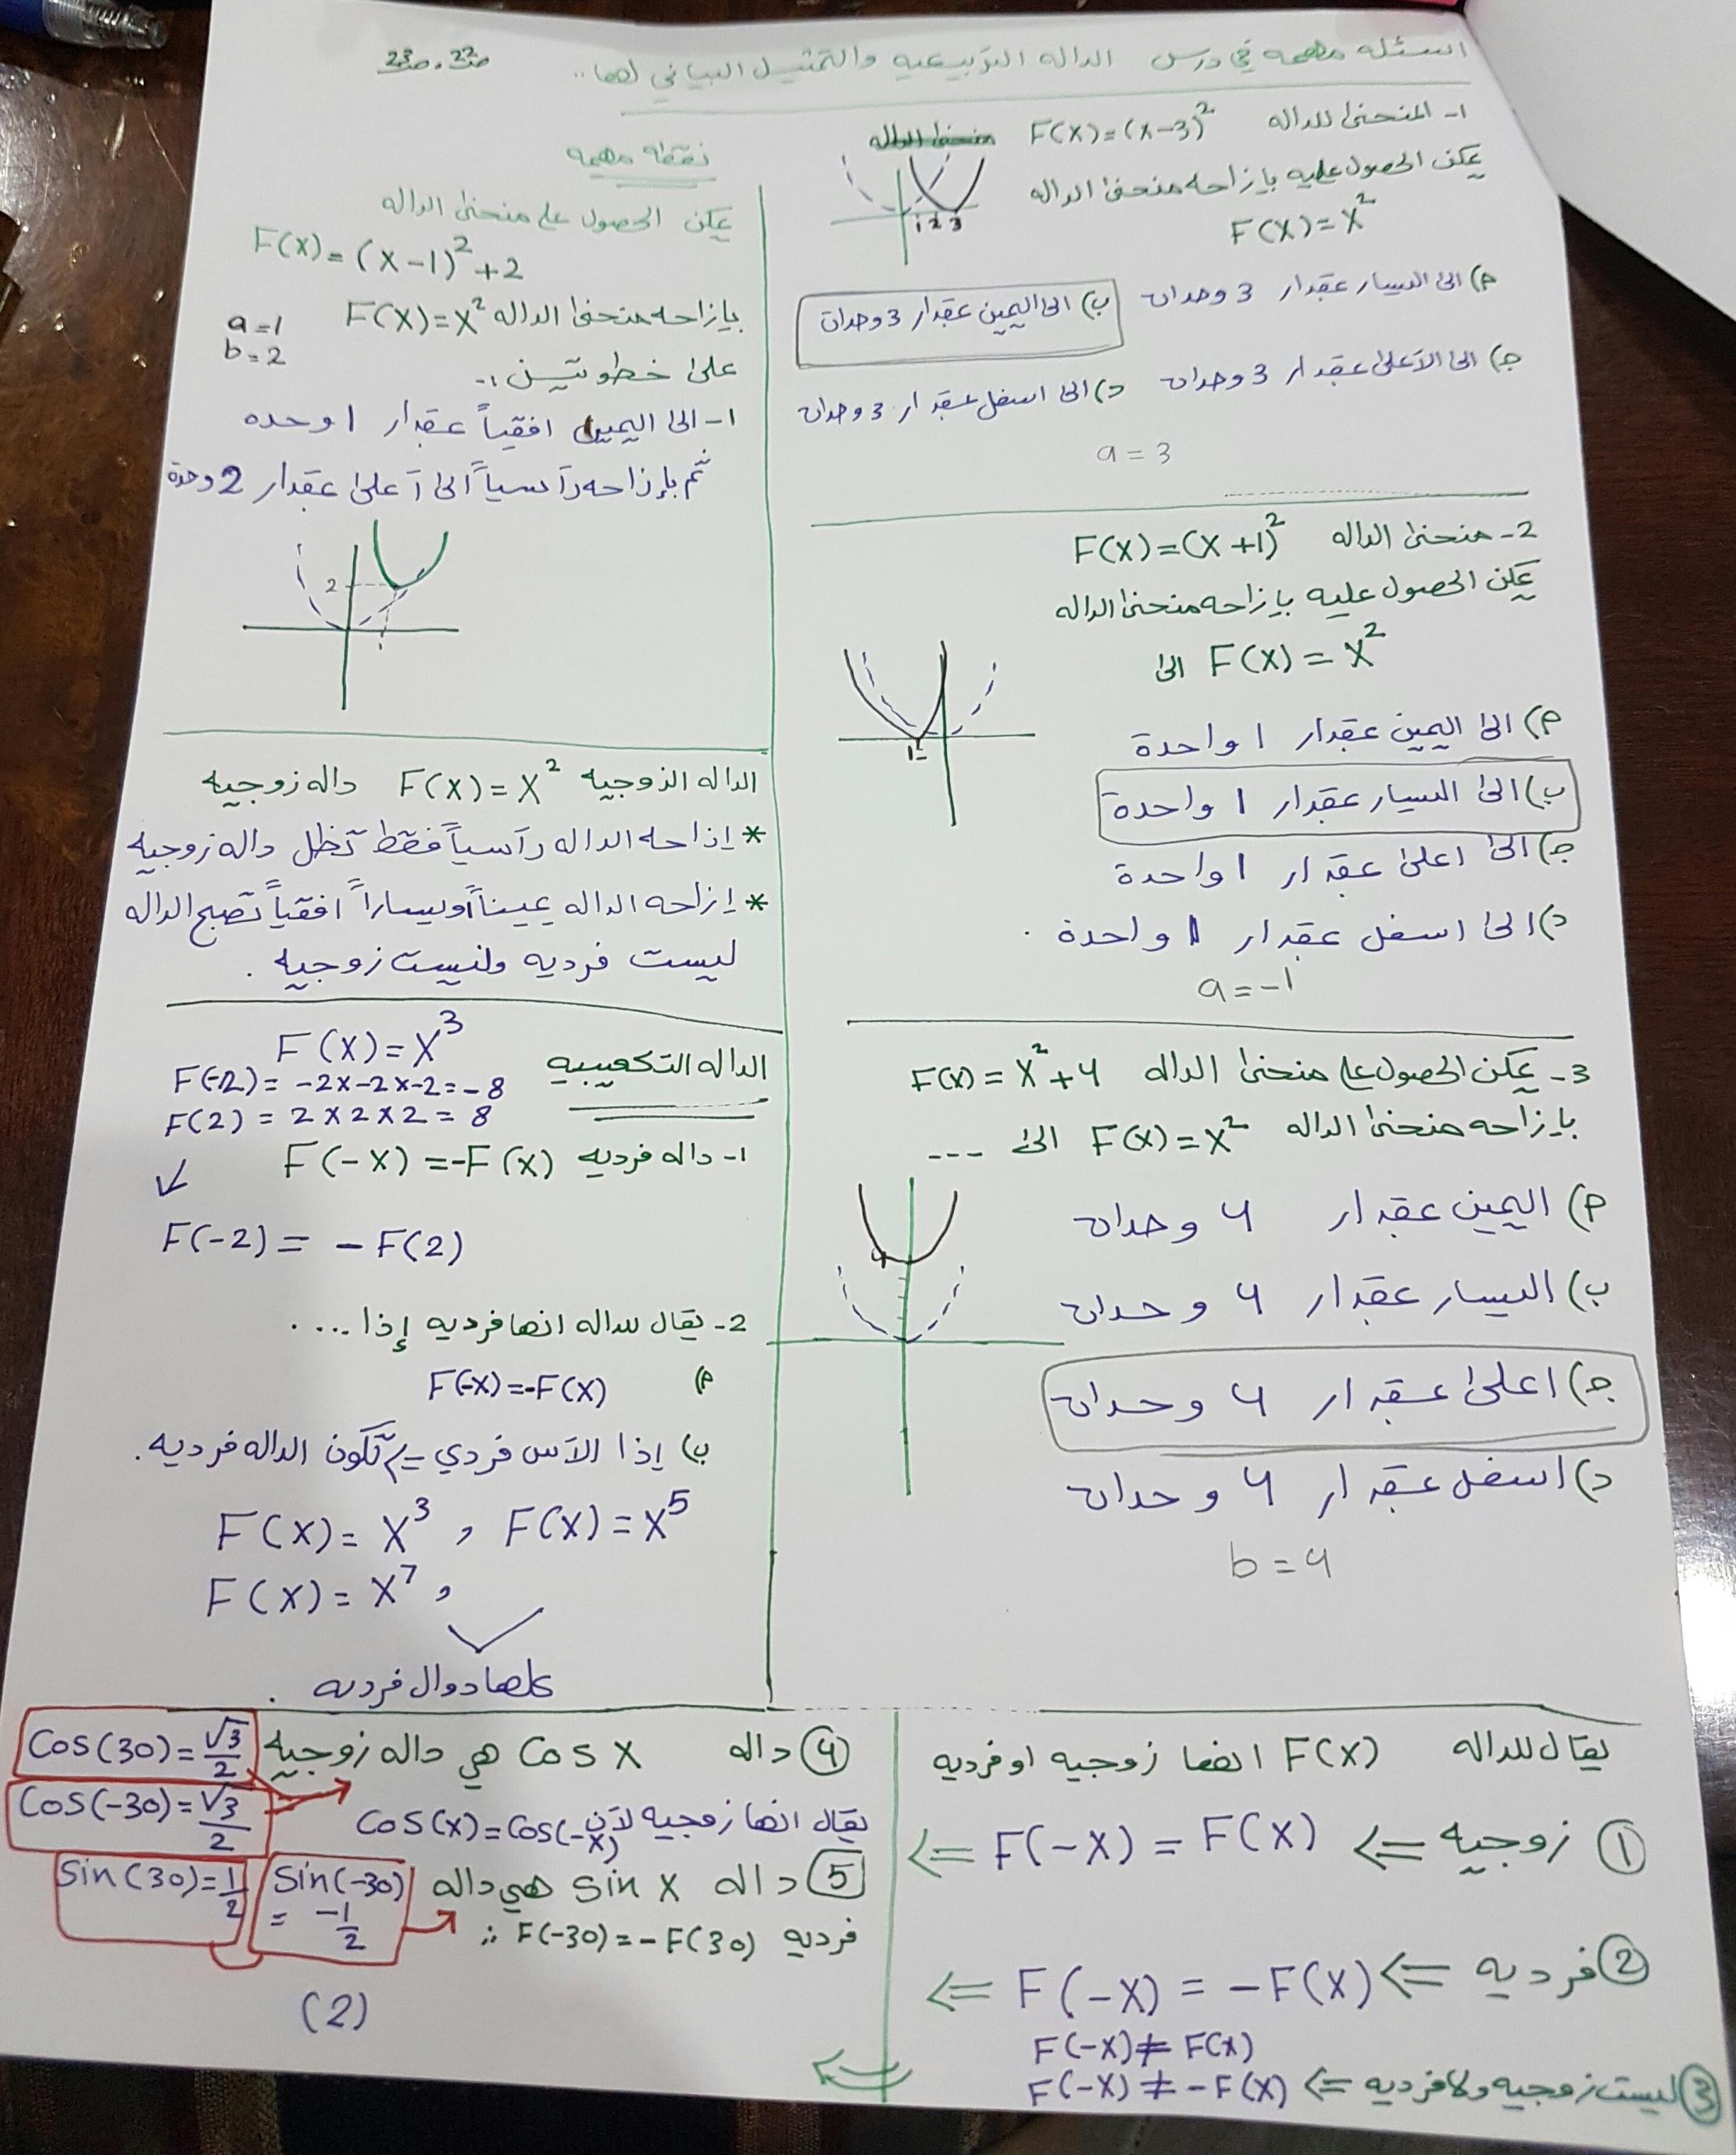 اسئله مهمه في درس الداله التربيعيه والتمثيل البياني لها..
ص22 ، ص23
1- المنحنى للداله F(X)=(X-3)²
يمكن الحصول عليه بإزاحه منحنى الداله
F(X)=X²
1 2 3
أ) الى اليسار بمقدار 3 وحدات
ب) الى اليمين بمقدار 3 وحدات
ج) الى الأعلى بمقدار 3 وحدات
د) الى اسفل بمقدار 3 وحدات
a = 3
2- منحنى الداله F(X)=(X+1)²
يمكن الحصول عليه بإزاحه منحنى الداله
F(X) = X² الى
1-
أ) الى اليمين بمقدار 1 واحدة
ب) الى اليسار بمقدار 1 واحدة
ج) الى اعلى بمقدار 1 واحدة
د) الى اسفل بمقدار 1 واحدة .
a = -1
3- يمكن الحصول على منحنى الداله F(X) = X²+4
بإزاحه منحنى الداله F(X)=X² الى ---
4
أ) اليمين بمقدار 4 وحدات
ب) اليسار بمقدار 4 وحدات
ج) اعلى بمقدار 4 وحدات
د) اسفل بمقدار 4 وحدات
b = 4
نقطه مهمه
يمكن الحصول على منحنى الداله
F(X)=(X-1)²+2
بإزاحه منحنى الداله F(X)=X²
a=1
b=2
على خطوتين :-
1- الى اليمين افقياً بمقدار 1 وحده
ثم بإزاحه رآسياً الى آعلى بمقدار 2 وحدة
2
1
الداله الزوجيه F(X)=X² داله زوجيه
* إزاحه الداله رآسياً فقط تظل داله زوجيه
* إزاحه الداله يميناً أو يساراً افقياً تصبح الداله
ليست فرديه وليست زوجيه .
الداله التكعيبيه
F(X)=X³
F(-2)= -2x-2x-2=-8
F(2) = 2x2x2 = 8
1- داله فرديه F(-X)=-F(X)
F(-2)= -F(2)
2- يقال للداله انها فرديه إذا ....
أ) F(-X)=-F(X)
ب) إذا الآس فردي تكون الداله فرديه.
F(X)= X³ , F(X)=X⁵
F(X)= X⁷ ,
كلها دوال فرديه .
يقال للداله F(X) انها زوجيه او فرديه
① زوجيه ⇐ F(-X) = F(X) ⇐
② فرديه ⇐ F(-X) = -F(X) ⇐
F(-X)≠ F(X)
③ ليست زوجيه ولا فرديه ⇐ F(-X) ≠ -F(X)
④ داله Cos X هي داله زوجيه
Cos(30)=√3/2
Cos(-30)=√3/2
يقال انها زوجيه لآن Cos(X)=Cos(-X)
5 داله sin X هي داله
sin(-30) = -1/2
Sin(30)=1/2
فرديه F(-30)=-F(30) ∴
(2)